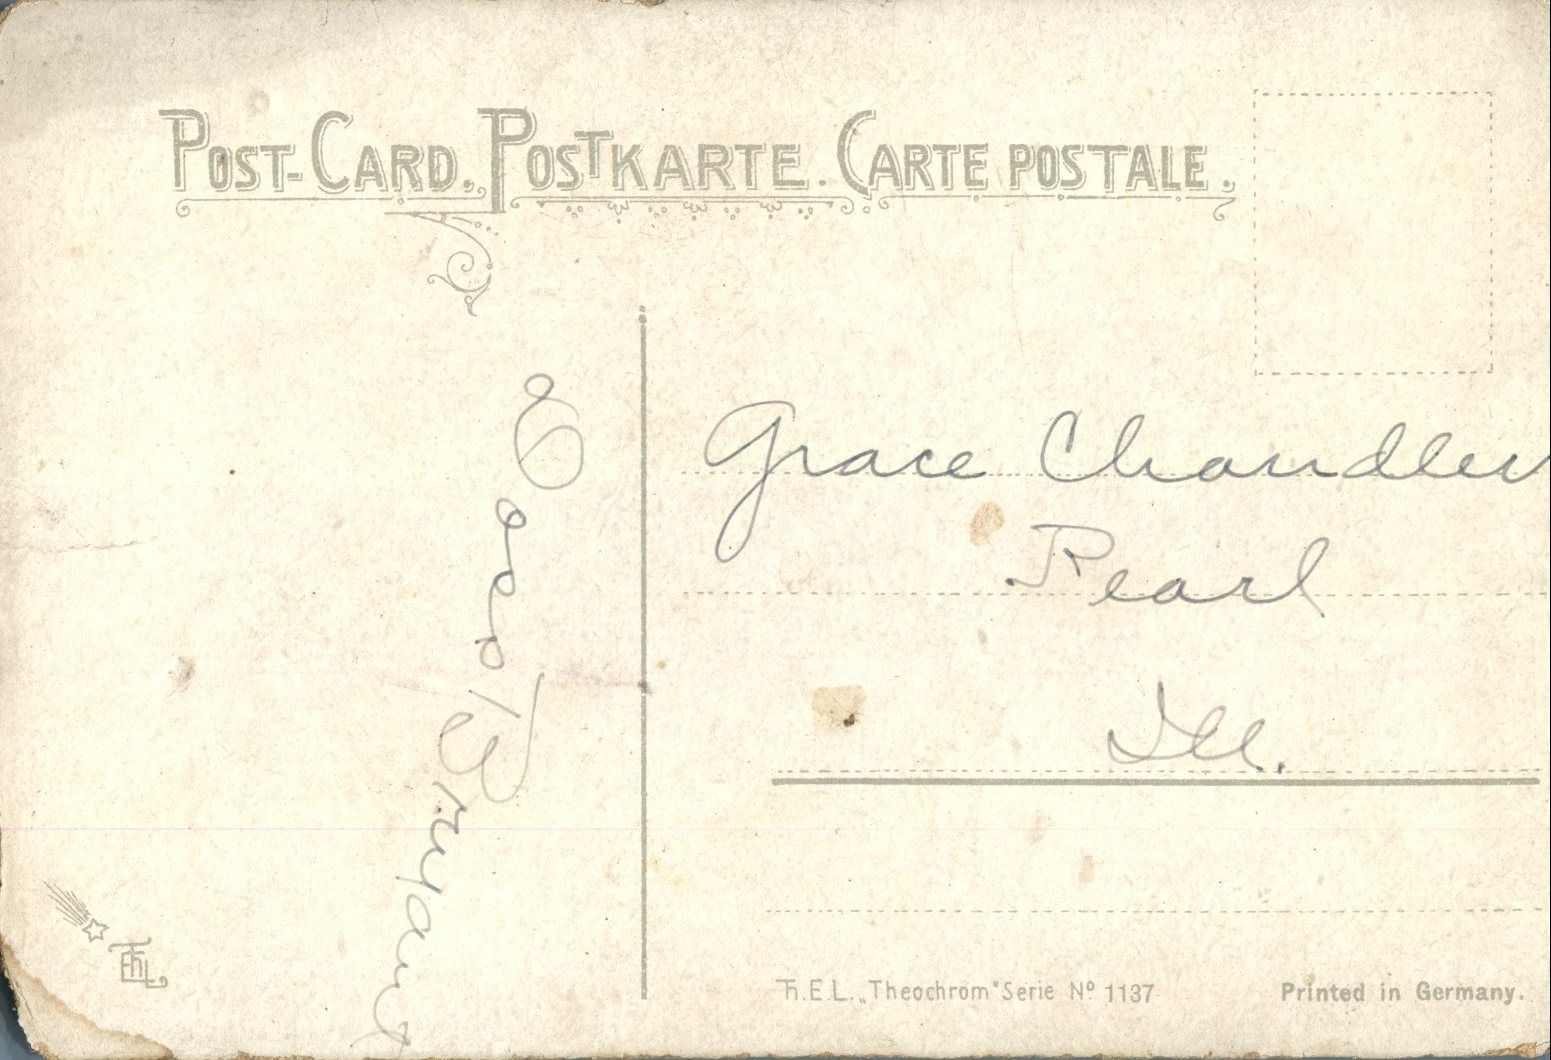 POST-CARD. POSTKARTE. CARTE POSTALE.
Bryant
Grace Chandler
Pearl
Ill.
ThEL
Th.E.L. „Theochrom" Serie Nº 1137
Printed in Germany.